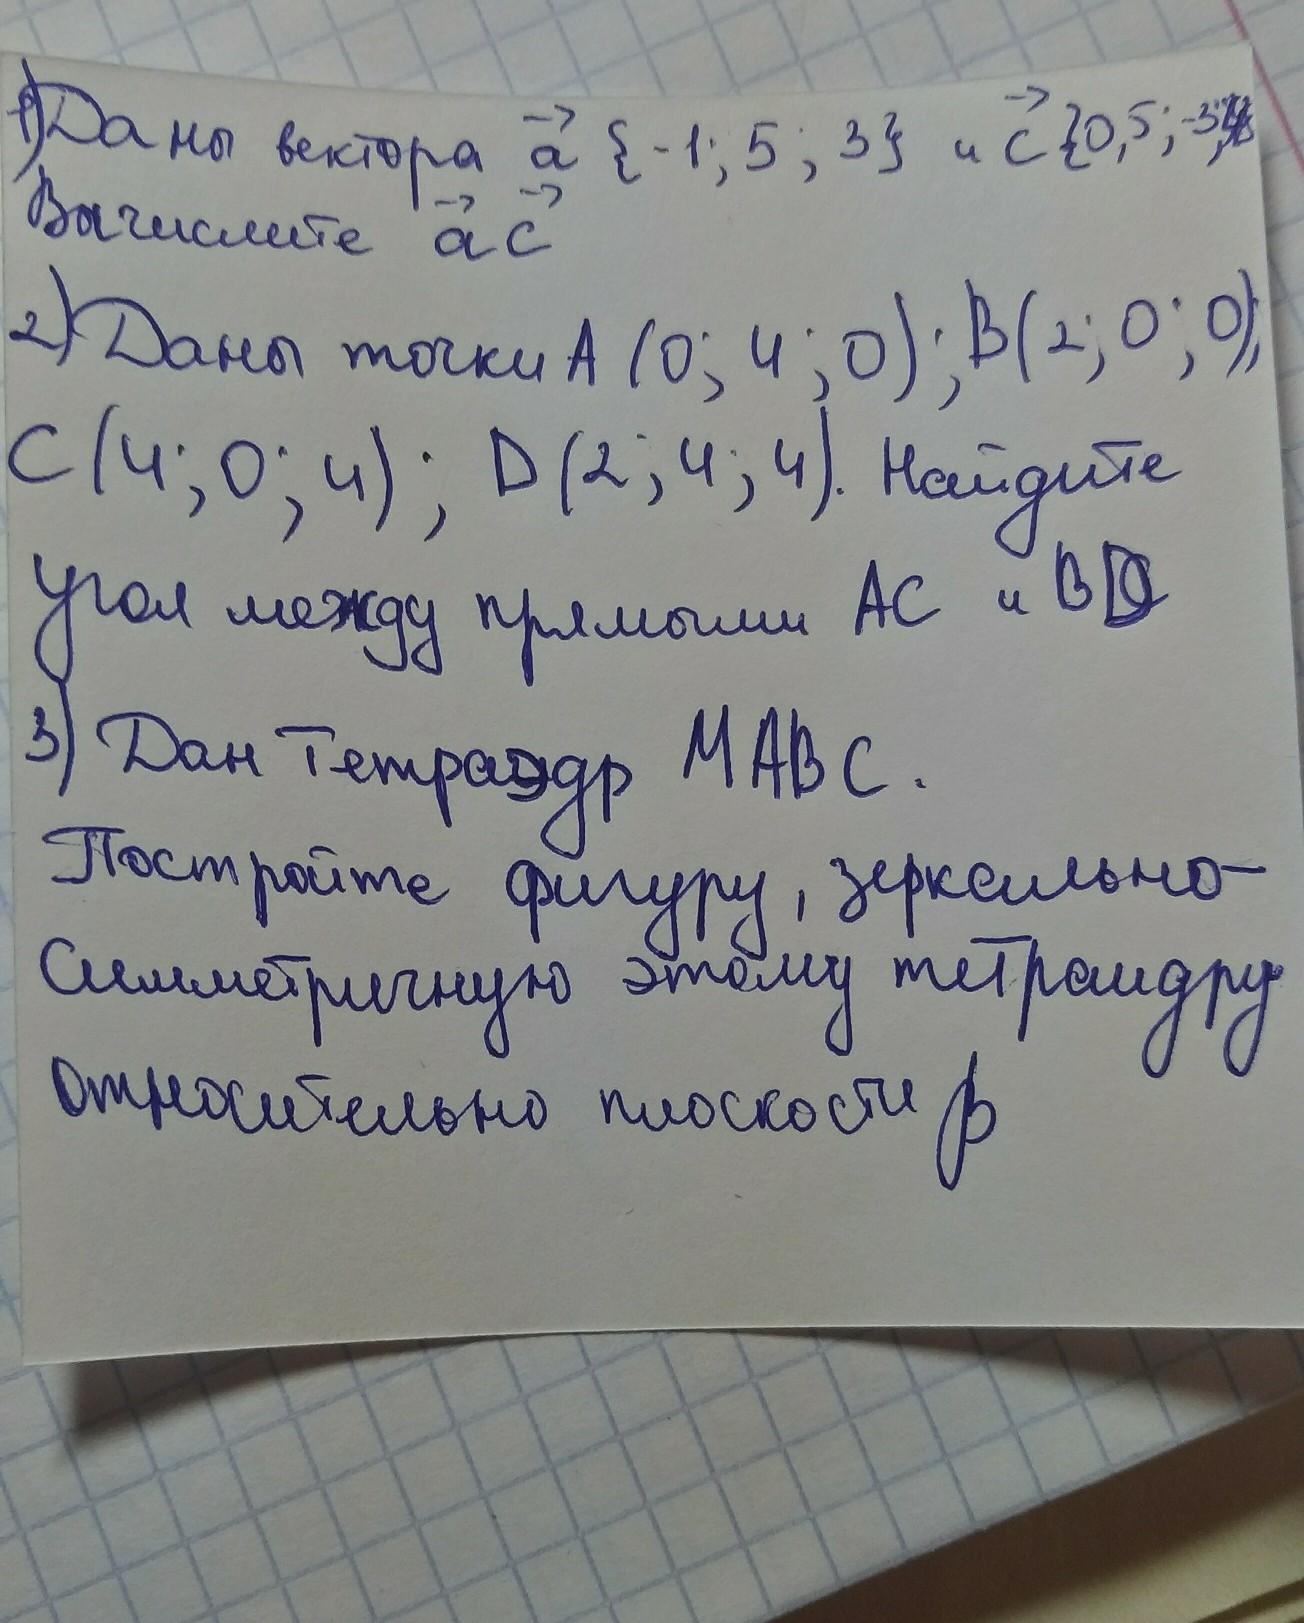 1) Даны вектора a→ {-1; 5; 3} и c→ {0,5; -3;
Вычислите a→ c→
2) Даны точки A (0; 4; 0); B(2; 0; 0);
C (4; 0; 4); D (2; 4; 4). Найдите
угол между прямыми AC и BD
3) Дан Тетраэдр MABC.
Постройте фигуру, зеркально-
симметричную этому тетраидру
относительно плоскости β